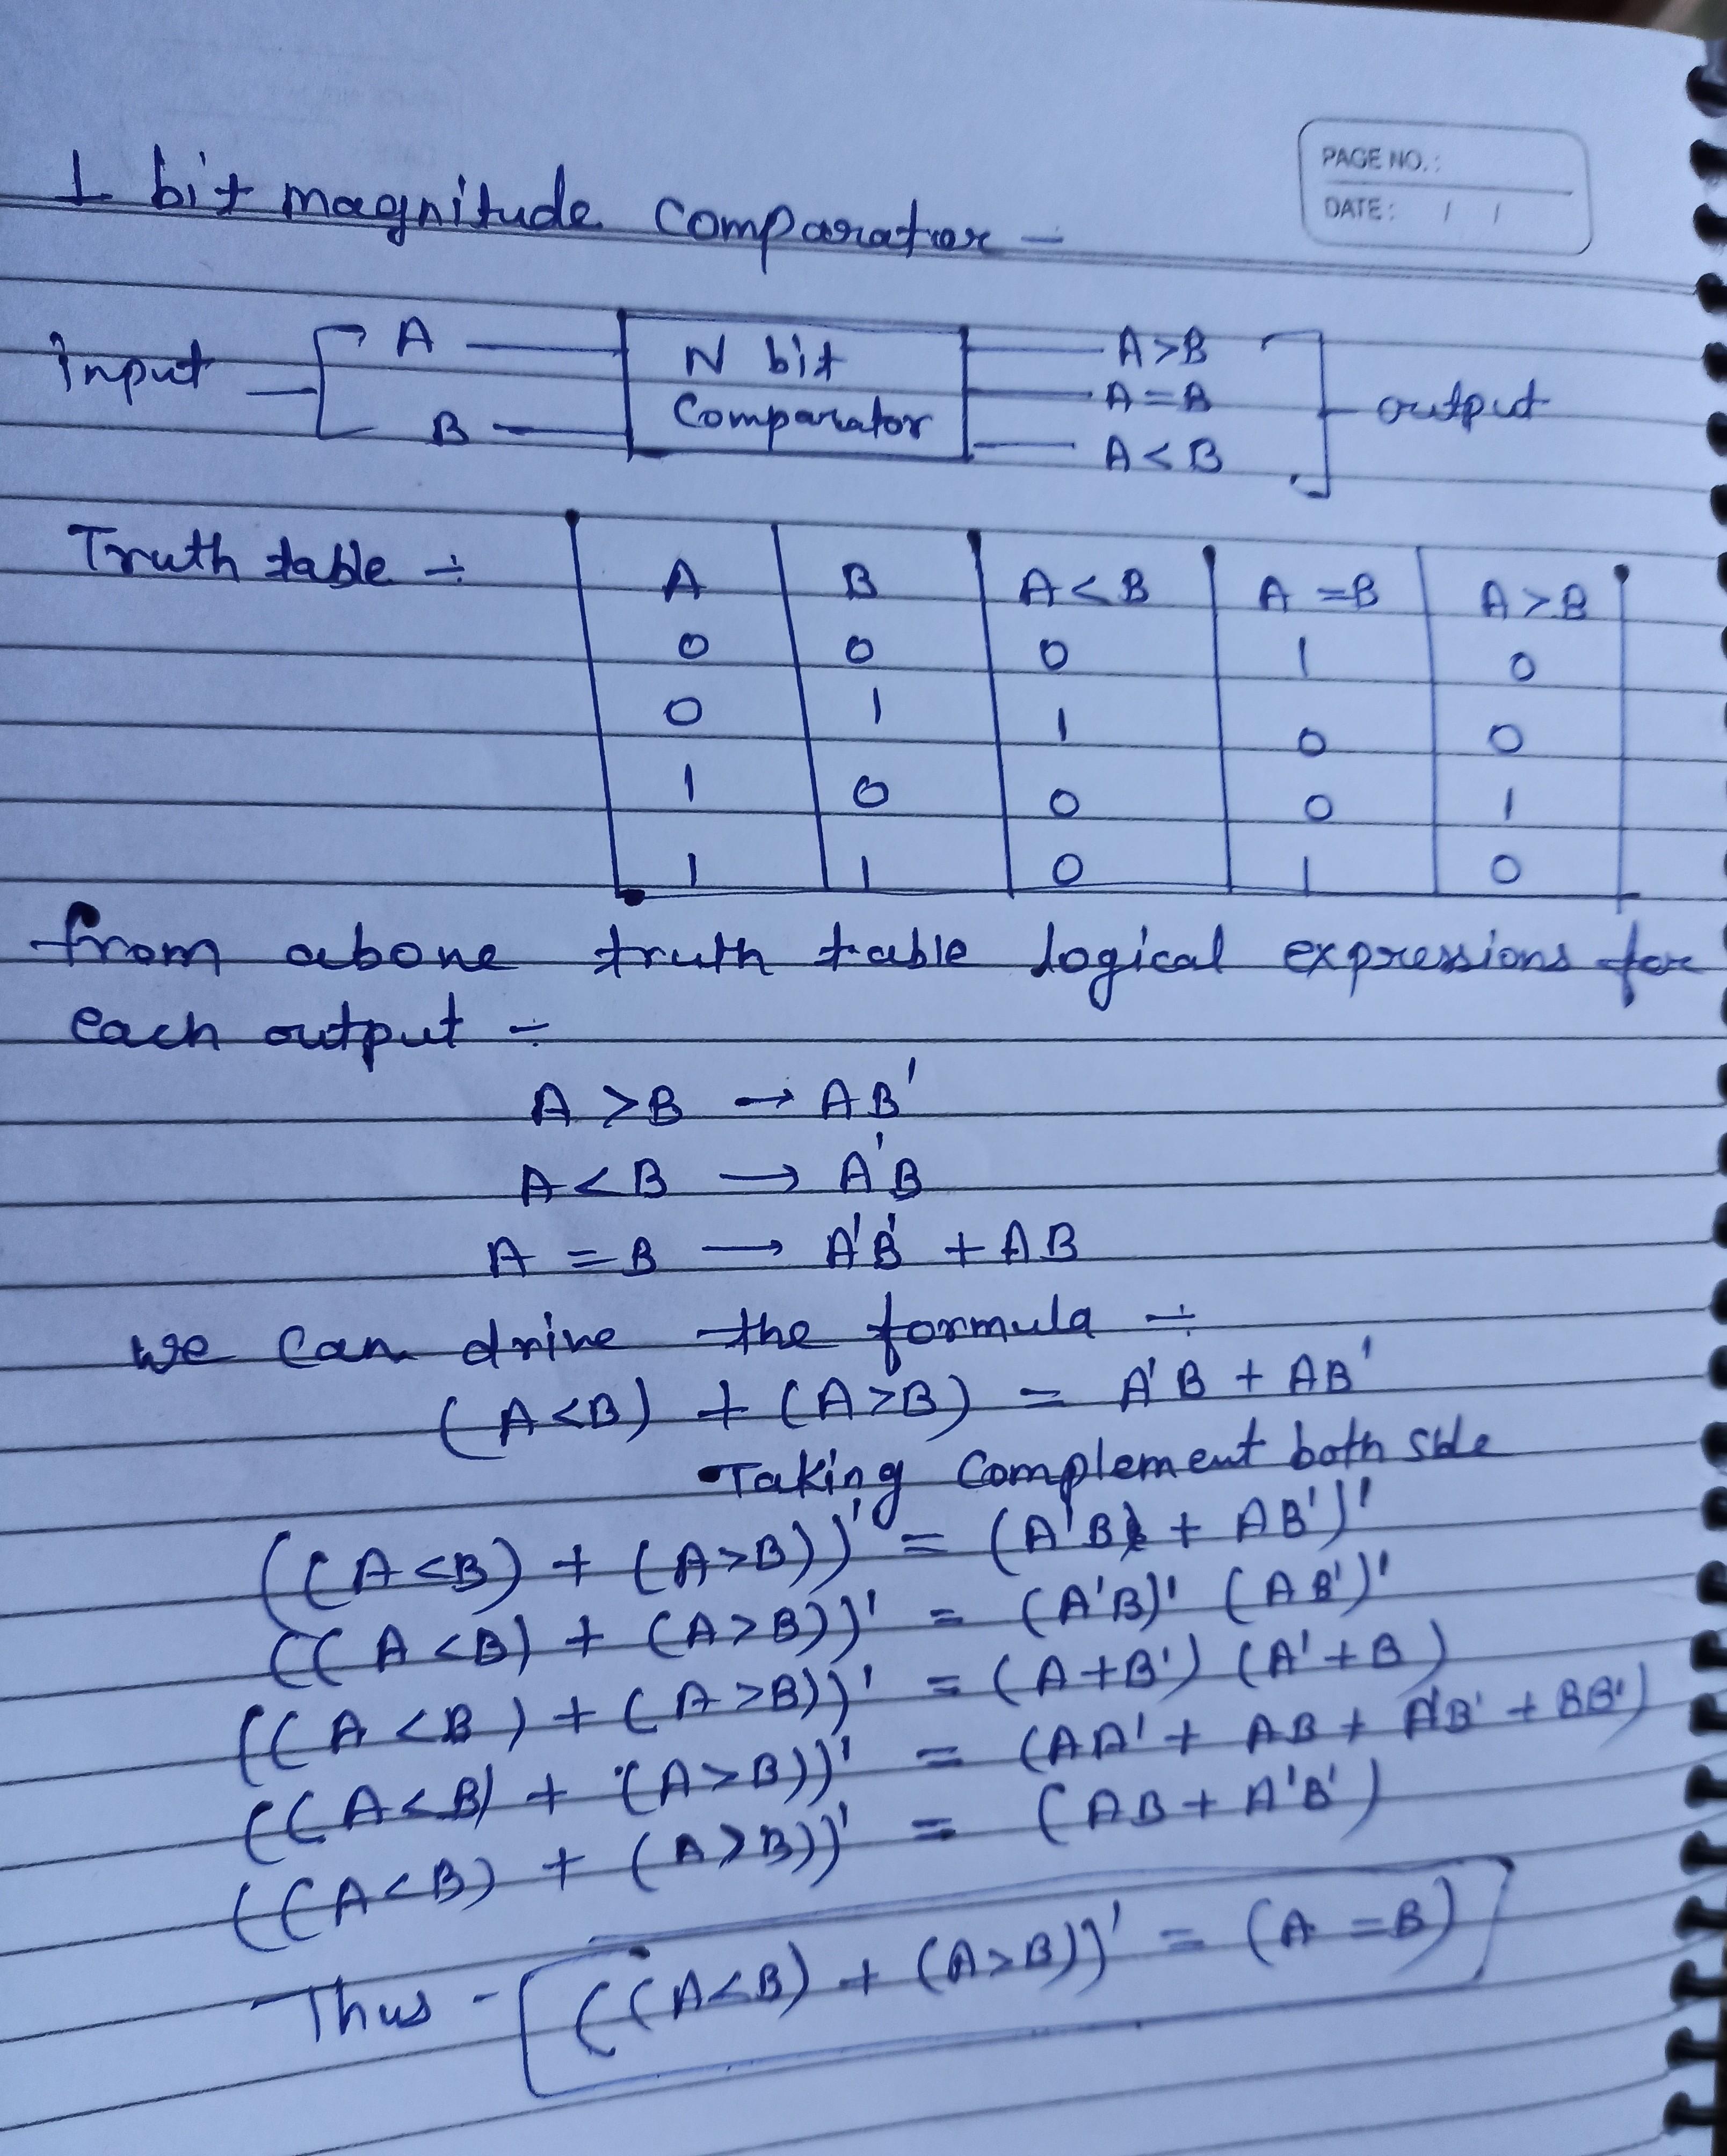 PAGE NO.:
DATE: / /
1 bit magnitude comparator -
input A N bit Comparator A>B output
B A=B
A<B
Truth table ÷
A B A<B A=B A>B
0 0 0 1 0
0 1 1 0 0
1 0 0 0 1
1 1 0 1 0
from above truth table logical expressions for
each output ÷
A >B → AB'
A<B → A'B
A = B → A'B' + AB
we can drive the formula ÷
(A<B) + (A>B) = A'B + AB'
Taking Complement both side
((A<B) + (A>B))' = (A'B + AB')'
((A<B) + (A>B))' = (A'B)' (AB')'
((A<B) + (A>B))' = (A+B') (A'+B)
((A<B) + (A>B))' = (AA' + AB + A'B' + BB')
((A<B) + (A>B))' = (AB + A'B')
Thus - ((A<B) + (A>B))' = (A = B)